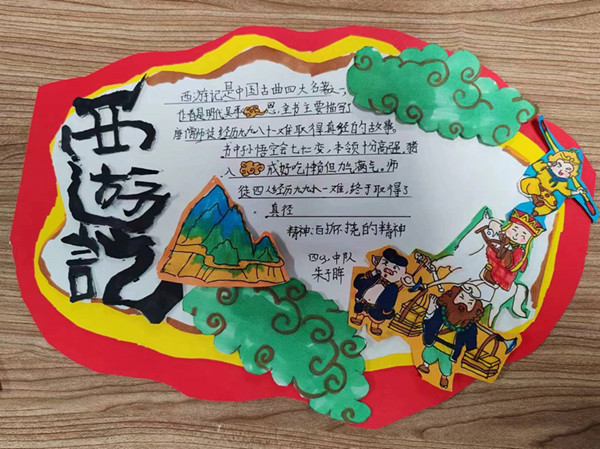 西遊記
西游记是中国古曲四大名著之一,
作者是明代吴承恩,全书主要描写了
唐僧师徒经历九九八十一难取得真经的故事。
书中孙悟空会七十二变,本领十分高强,猪
八成好吃懒但力气满气,师
徒四人经历九九八一难,终于取得了
真径
精神:百折不挠的精神
四(2)中队